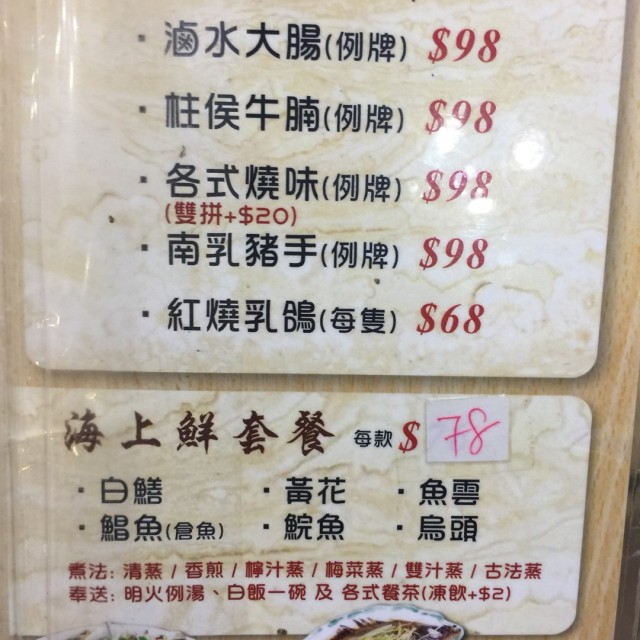 · 滷水大腸(例牌) $98
· 柱侯牛腩(例牌) $98
· 各式燒味(例牌) $98
(雙拼+$20)
· 南乳豬手(例牌) $98
· 紅燒乳鴿(每隻) $68
海上鮮套餐 每款 $ 78
· 白鱔 · 黃花 · 魚雲
· 鯧魚(倉魚) · 鯇魚 · 烏頭
煮法: 清蒸 / 香煎 / 檸汁蒸 / 梅菜蒸 / 雙汁蒸 / 古法蒸
奉送: 明火例湯、白飯一碗 及 各式餐茶(凍飲+$2)